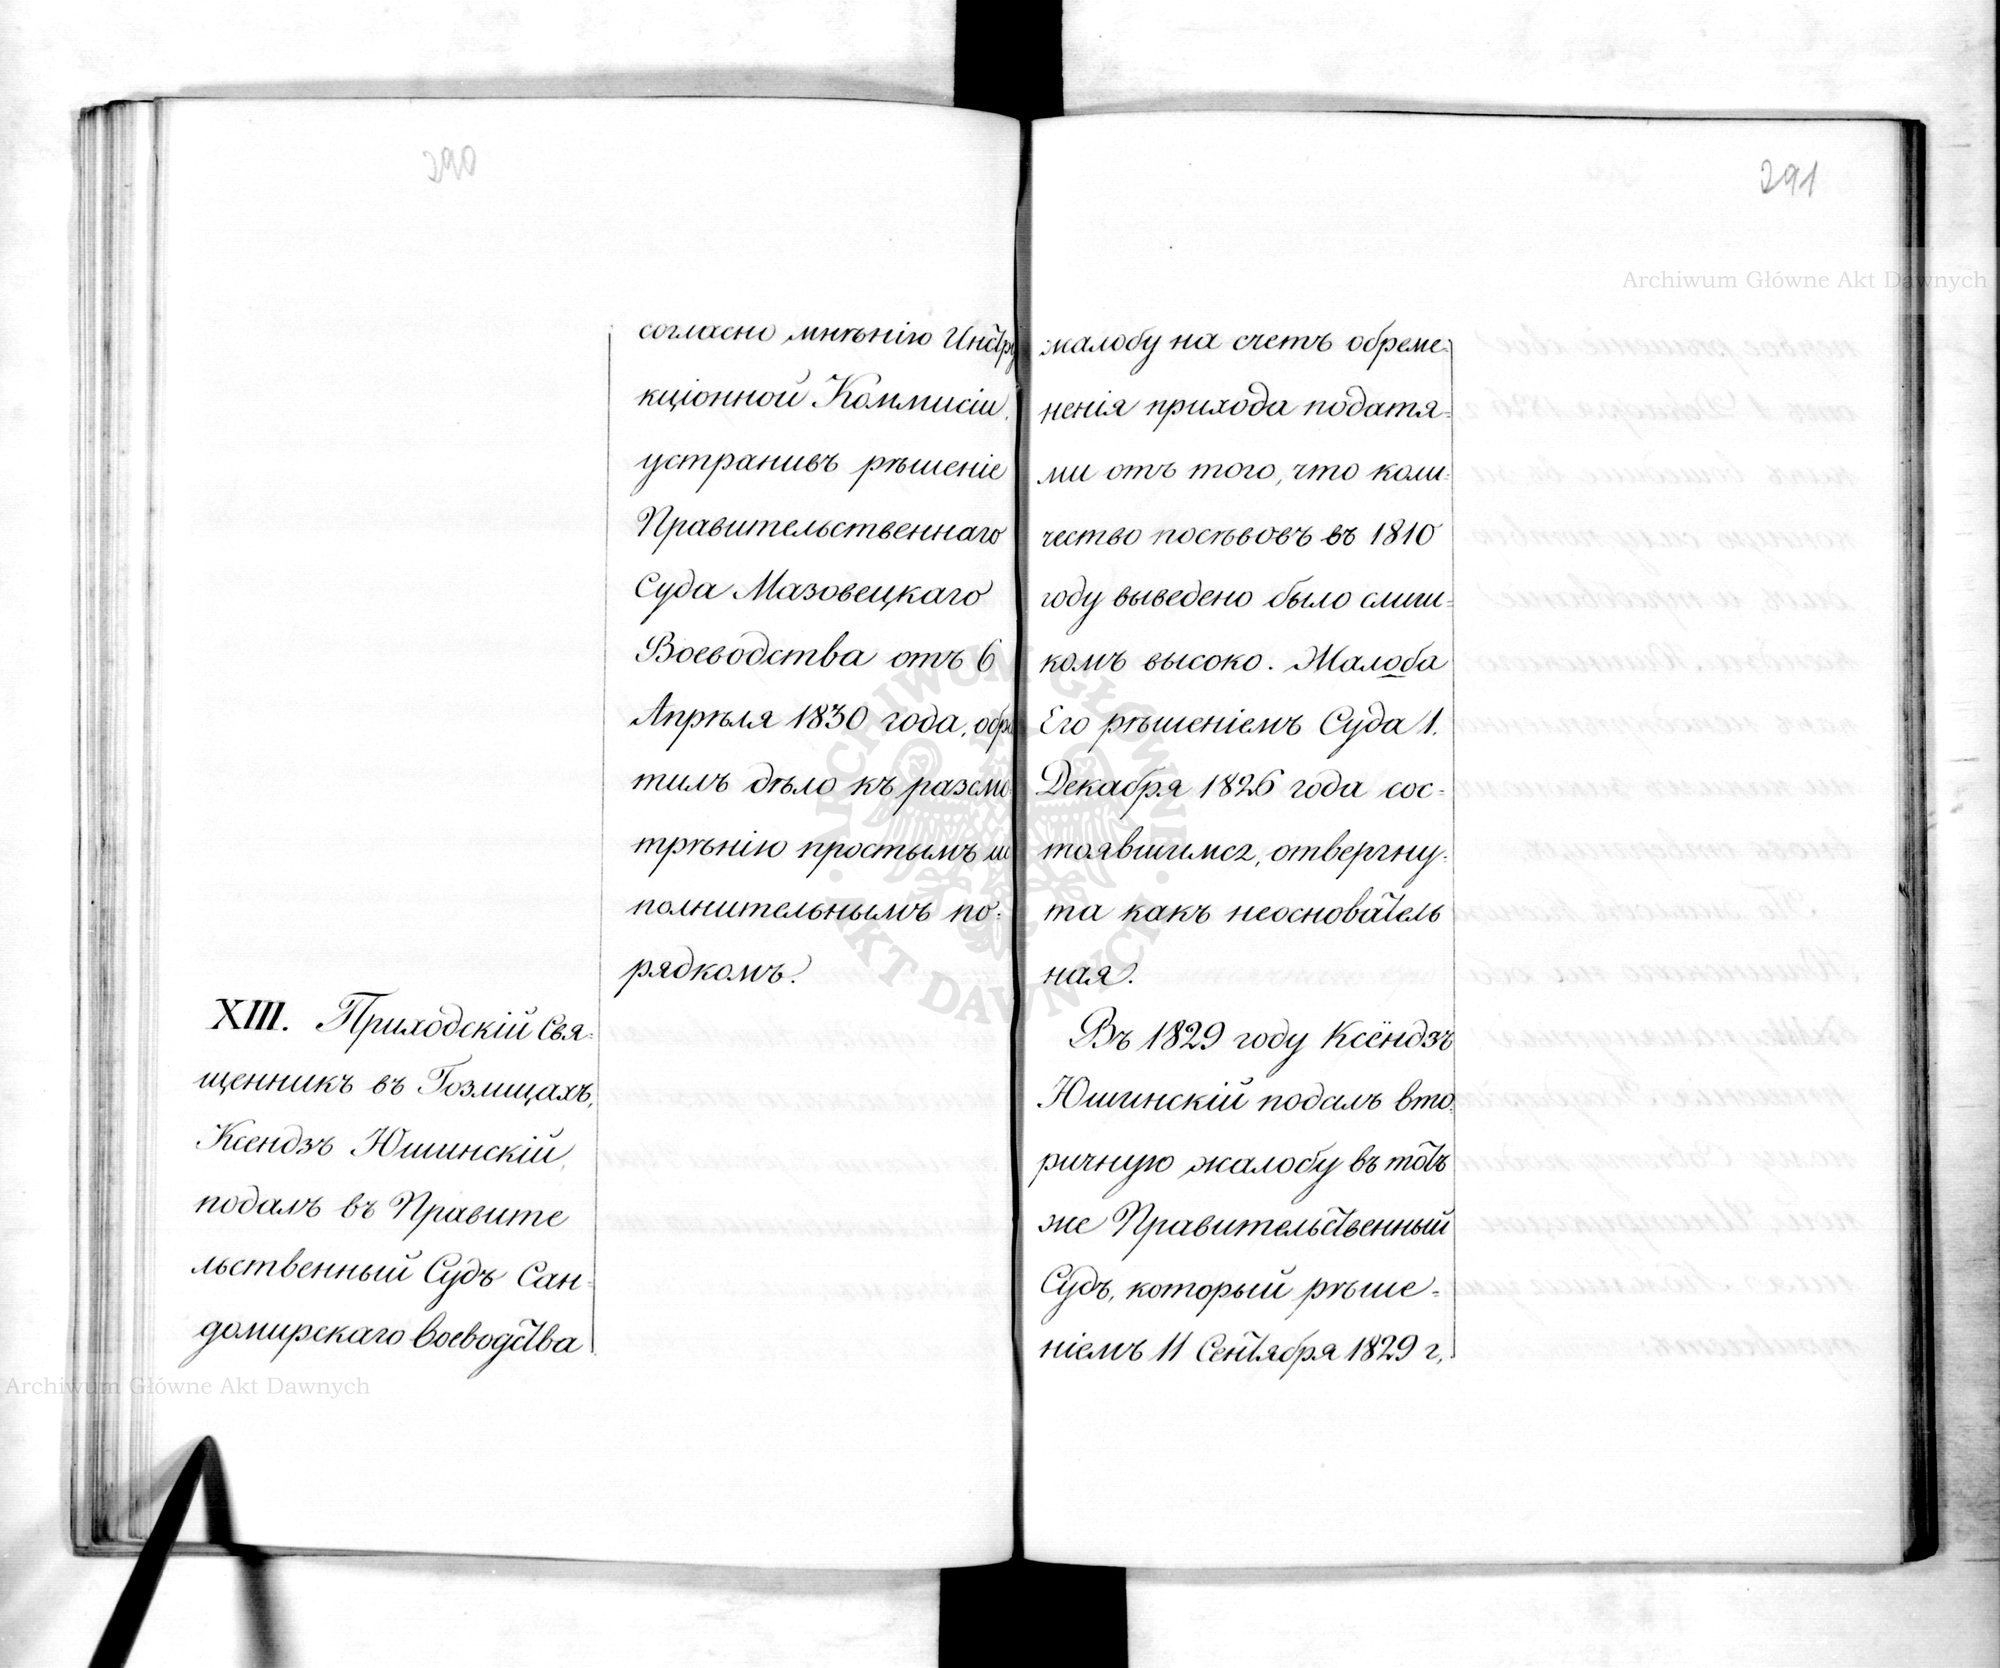 290
согласно мнѣнію Инстру
кціонной Коммисіи,
устранивъ рѣшеніе
Правительственнаго
Суда Мазовецкаго
Воеводства отъ 6
Апрѣля 1830 года, обра
тилъ дѣло къ разсмо-
трѣнію простымъ ис
полнительнымъ по-
рядкомъ.
XIII. Приходскій Свя-
щенникъ въ Гозлицахъ,
Ксендзъ Юшинскій,
подалъ въ Правите
льственный Судъ Сан-
домирскаго Воеводства
291
жалобу на счетъ обреме-
ненія прихода податя-
ми отъ того, что коли-
чество посѣвовъ въ 1810
году выведено было слиш-
комъ высоко. Жалоба
Его рѣшеніемъ Суда 1.
Декабря 1826 года сос-
тоявшимся, отвергну-
та какъ неосновátель
ная.
Въ 1829 году Ксёндзъ
Юшинскій подалъ вто-
ричную жалобу въ тотъ
же Правительственный
Судъ, который рѣше-
ніемъ 11 Сентября 1829 г.
Archiwum Główne Akt Dawnych
Archiwum Główne Akt Dawnych
ARCHIWUM GŁÓWNE AKT DAWNYCH